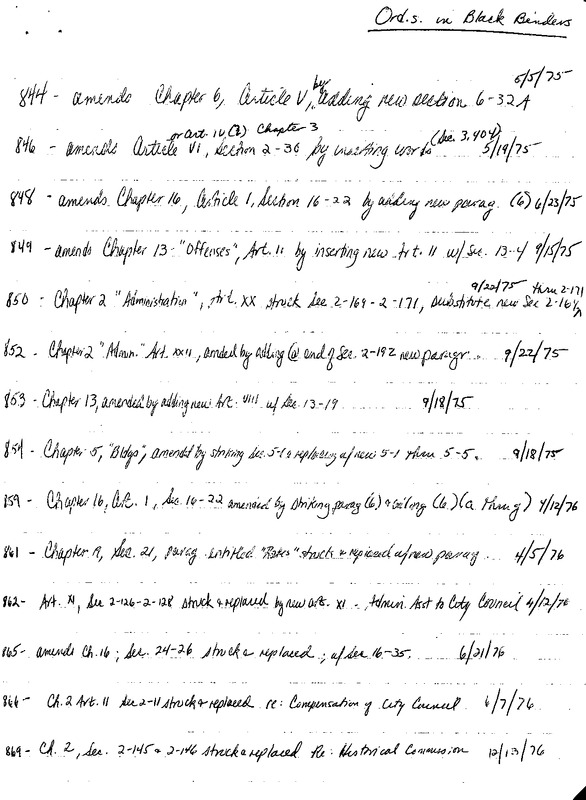 Ord.s. in Black Binders
5/5/75
844 - amends Chapter 6, Article V, by adding new section 6-32A
or Art. IV, (2) Chapter 3 (Sec. 3.404)
846 - amends Article VI, Section 2-36 by inserting words 5/19/75
848 - amends Chapter 16, Article 1, Section 16-22 by adding new parag. (6) 6/23/75
849 - amends Chapter 13 - "Offenses", Art. 11 by inserting new Art. 11 w/ Sec. 13-4 9/15/75
9/22/75 thru 2-171
850 - Chapter 2 "Administration", Art. XX struck Sec 2-169 - 2-171, substitute new Sec 2-169
852 - Chapter 2 "Admin." Art. XXII, amded by adding @ end of Sec. 2-192 new paragr. 9/22/75
853 - Chapter 13, amended by adding new Art. VIII w/ Sec. 13-19 9/18/75
854 - Chapter 5, "Bldgs", amended by striking Sec. 5-1 & replacing w/ new 5-1 thru 5-5. 9/18/75
859 - Chapter 16, Art. 1, Sec. 16-22 amended by striking parag (6) & adding (6) (a thru g) 4/12/76
861 - Chapter 9, Sec. 21, parag entitled "Rates" struck & replaced w/ new parag 4/5/76
862 - Art. XI, Sec 2-126 - 2-128 struck & replaced by new art. XI - Admin. Asst to City Council 4/12/76
865 - amends Ch. 16; Sec. 24-26 struck & replaced; w/ Sec 16-35. 6/21/76
866 - Ch. 2 Art. 11 Sec 2-11 struck & replaced re: Compensation of City Council 6/7/76
869 - Ch. 2, Sec. 2-145 & 2-146 struck & replaced Re: Historical Commission 12/13/76